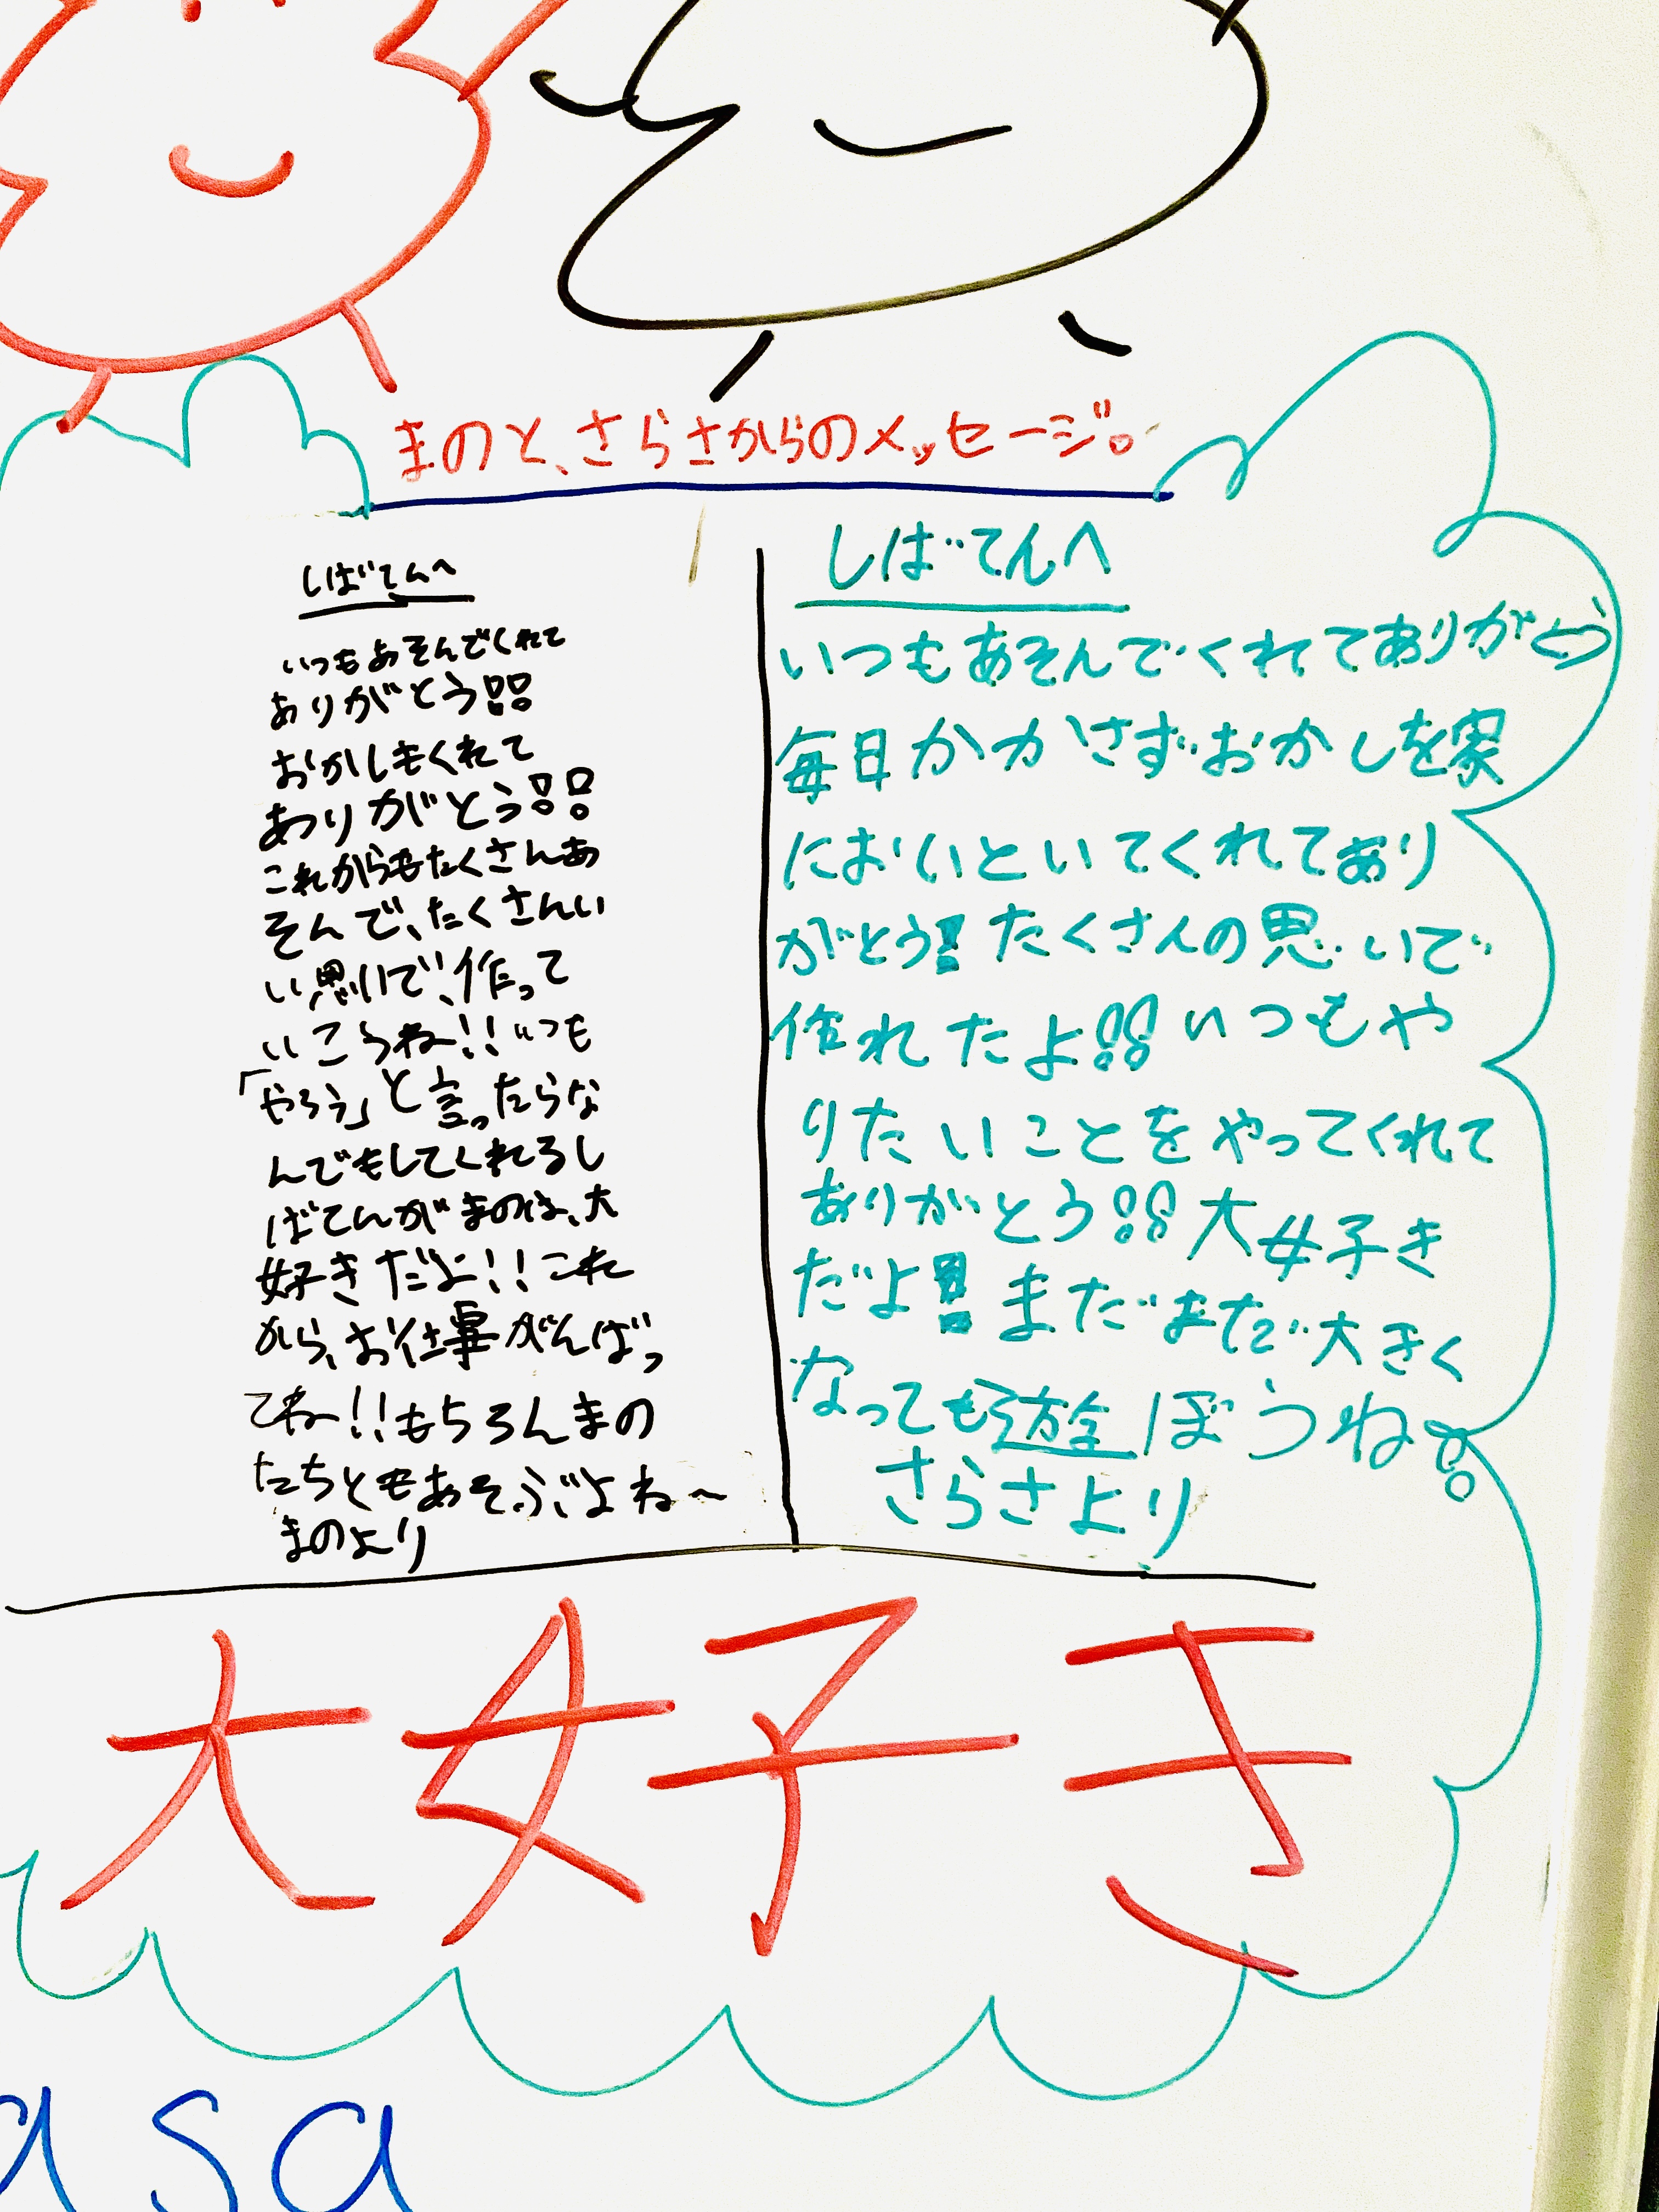 まのと、さらさからのメッセージ。
しばてんへ
いつもあそんでくれて
ありがとう!!
おかしもくれて
ありがとう!!
これからもたくさんあ
そんで、たくさんい
い思いで、作って
いこうね!!いつも
「やろう」と言ったらな
んでもしてくれるし
ばてんがまのは、大
好きだよ!!これ
から、お仕事がんばっ
てね〜!!もちろんまの
たちともあそぶよね〜
まのより
しばてんへ
いつもあそんでくれてありがとう
毎日かかさずおかしを家
においといてくれてあり
がとう!!たくさんの思いで
作れたよ!!いつもや
りたいことをやってくれて
ありがとう!!大好き
だよ!!まだまだ大きく
なっても遊ぼうね。
さらさより
大好き
asa